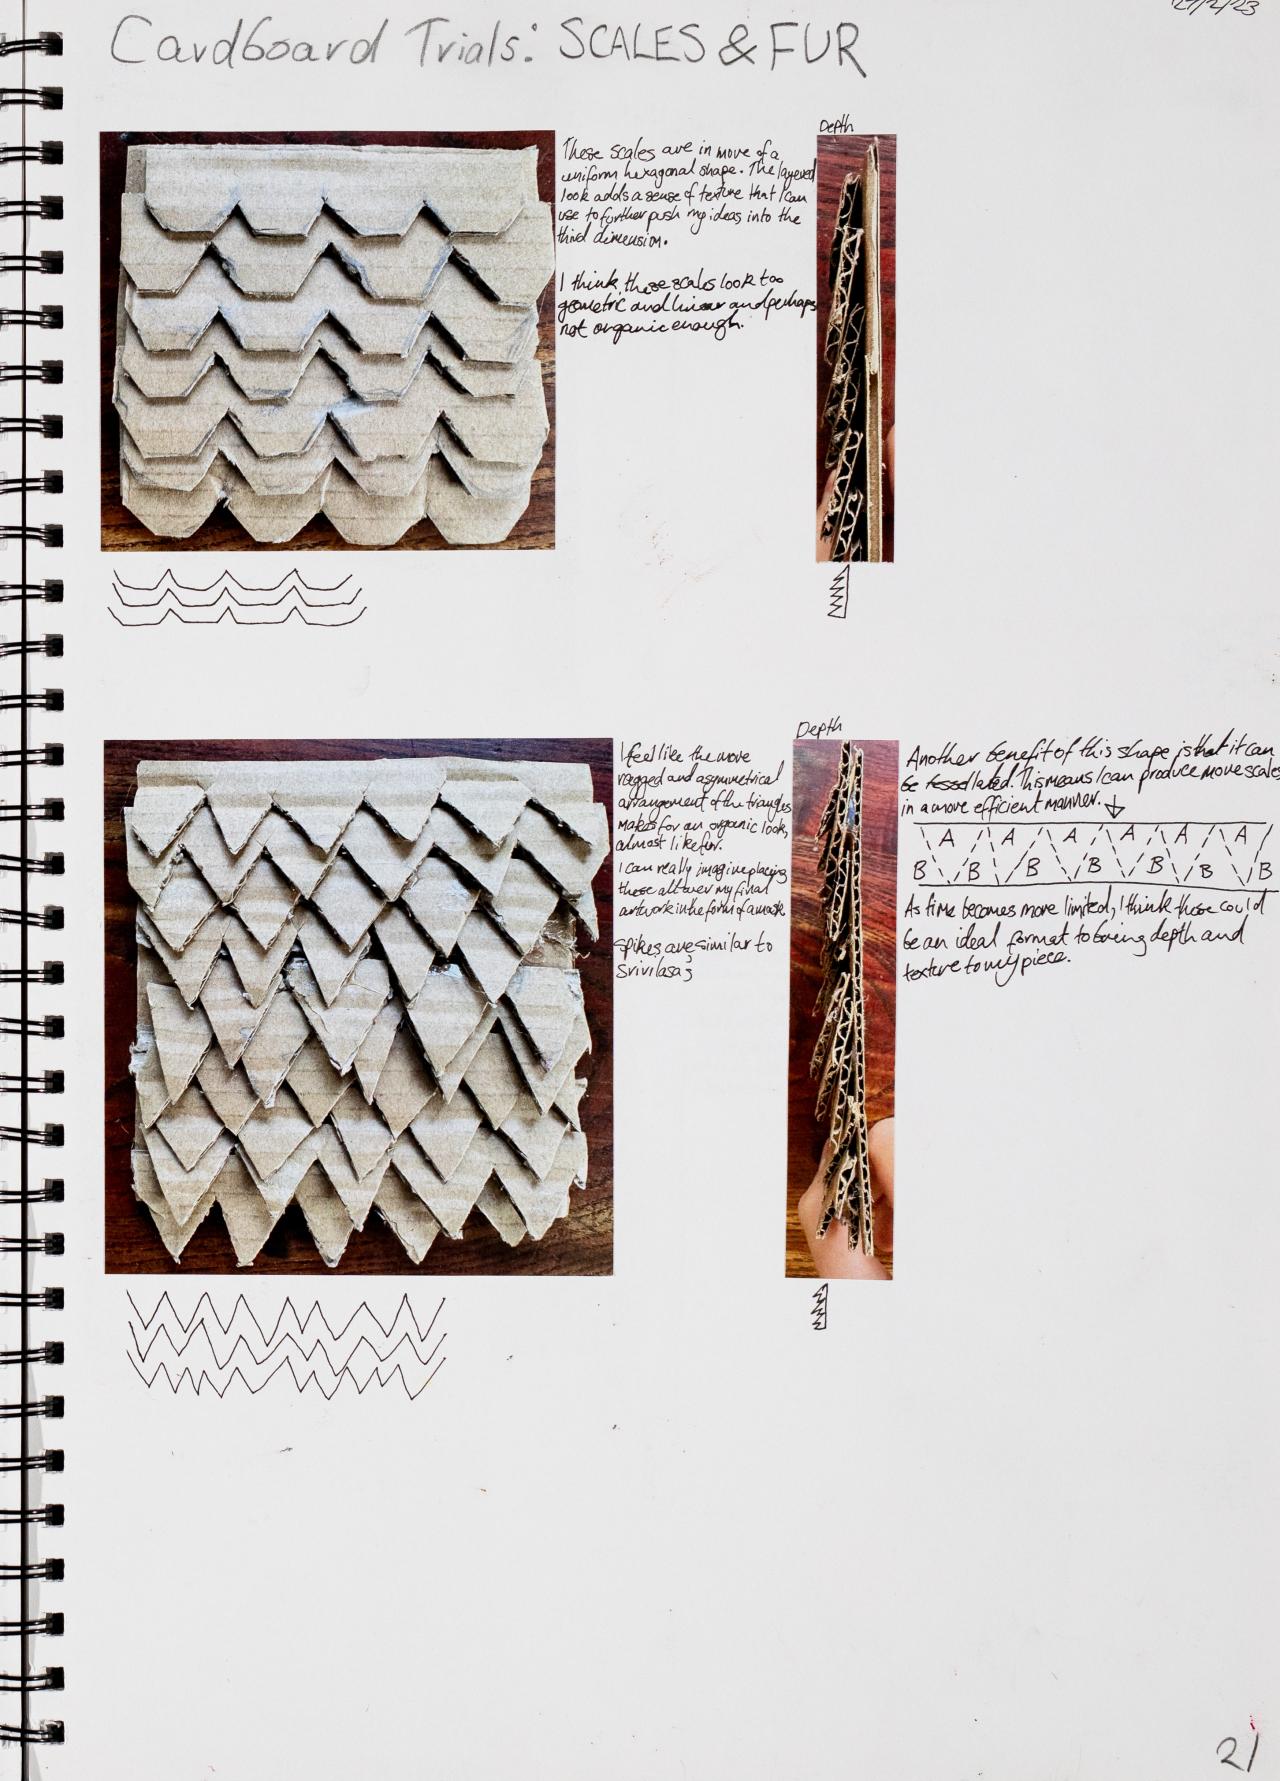 Cardboard Trials: SCALES & FUR
Depth
These scales are in more of a
uniform hexagonal shape. The layered
look adds a sense of texture that I can
use to further push my ideas into the
third dimension.
I think these scales look too
geometric and linear and perhaps
not organic enough.
Depth
I feel like the more
ragged and asymmetrical
arrangement of the triangles
makes for an organic look,
almost like fur.
I can really imagine placing
these all over my final
artwork in the form of a mask
Spikes are similar to
Another benefit of this shape is that it can
be tessellated. This means I can produce more scales
in a more efficient manner.
A A A A A A A
B B B B B B B
As time becomes more limited, I think these could
be an ideal format to bring depth and
texture to my piece.
21